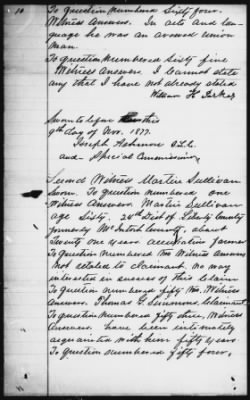 10
To question numbered Sixty four.
Witness Answers. In acts and lan-
guage he was an avowed union
man.
To question numbered Sixty five
Witness Answers. I cannot state
any that I have not already stated
William H
Sworn to before this
9th day of Nov. 1877.
Joseph Ashmore
and Special Commissioner
Second Witness Martin Sullivan
Sworn. To question numbered one
Witness Answers. Martin Sullivan
age Sixty. 20th Dist of Liberty County
formerly McIntosh County, about
Twenty one years occupation farmer
To question numbered two Witness Answers
Not related to claimant, no way
interested in success of this Claim
To question numbered fifty two, Witness
Answers. Thomas G. Simmons, Claimant
To question numbered fifty three, Witness
Answers. have been intimately
acquainted with him fifty years
To question numbered fifty four,